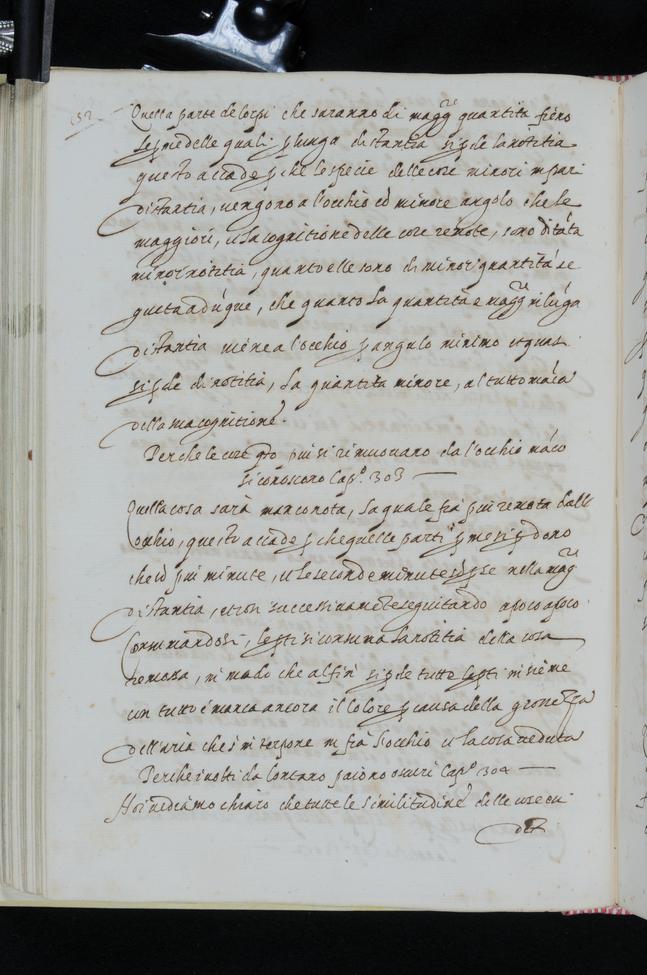 152
Quella parte de corpi che saranno di magg.re quantità fiero
le p.me delle quali p lunga distantia si pde la notitia
questo accade p che le specie delle cose minori in pari
distantia, uengono a l'occhio cō minore angolo che le
maggiori, e la cognitione delle cose remote, sono di tāta
minor notitia, quanto elle sono di minor quantità se
guita adūque, che quanto la quantità e magg.re in lūga
distantia uiene a l'occhio p angulo minimo et quasi
si pde di notitia, la quantita minore, al tutto māca
della sua cognitione.
Perche le cose q.to piu si rimuouano da l'occhio māco
si conoscono Cap.o 303
Quella cosa sarà manco nota, la quale fia piu remota dall
occhio, questo accade p che quelle parti p.me si pdono
che sō piu minute, e le seconde minute sō pse nella mag.re
distantia, et cosi successiuamēte seguitando apoco apoco
consumandosi, le pti si consuma la notitia della cosa
remossa, in modo che al fin si pde tutte le pti insieme
con tutto e manca ancora il colore p causa della grossezza
dell'aria che s'interpone in fra l'occhio e la cosa ueduta
Perche i uolti da lontano paiono oscuri Cap.o 304
Noi uediamo chiaro che tutte le similitudine delle cose eui
det